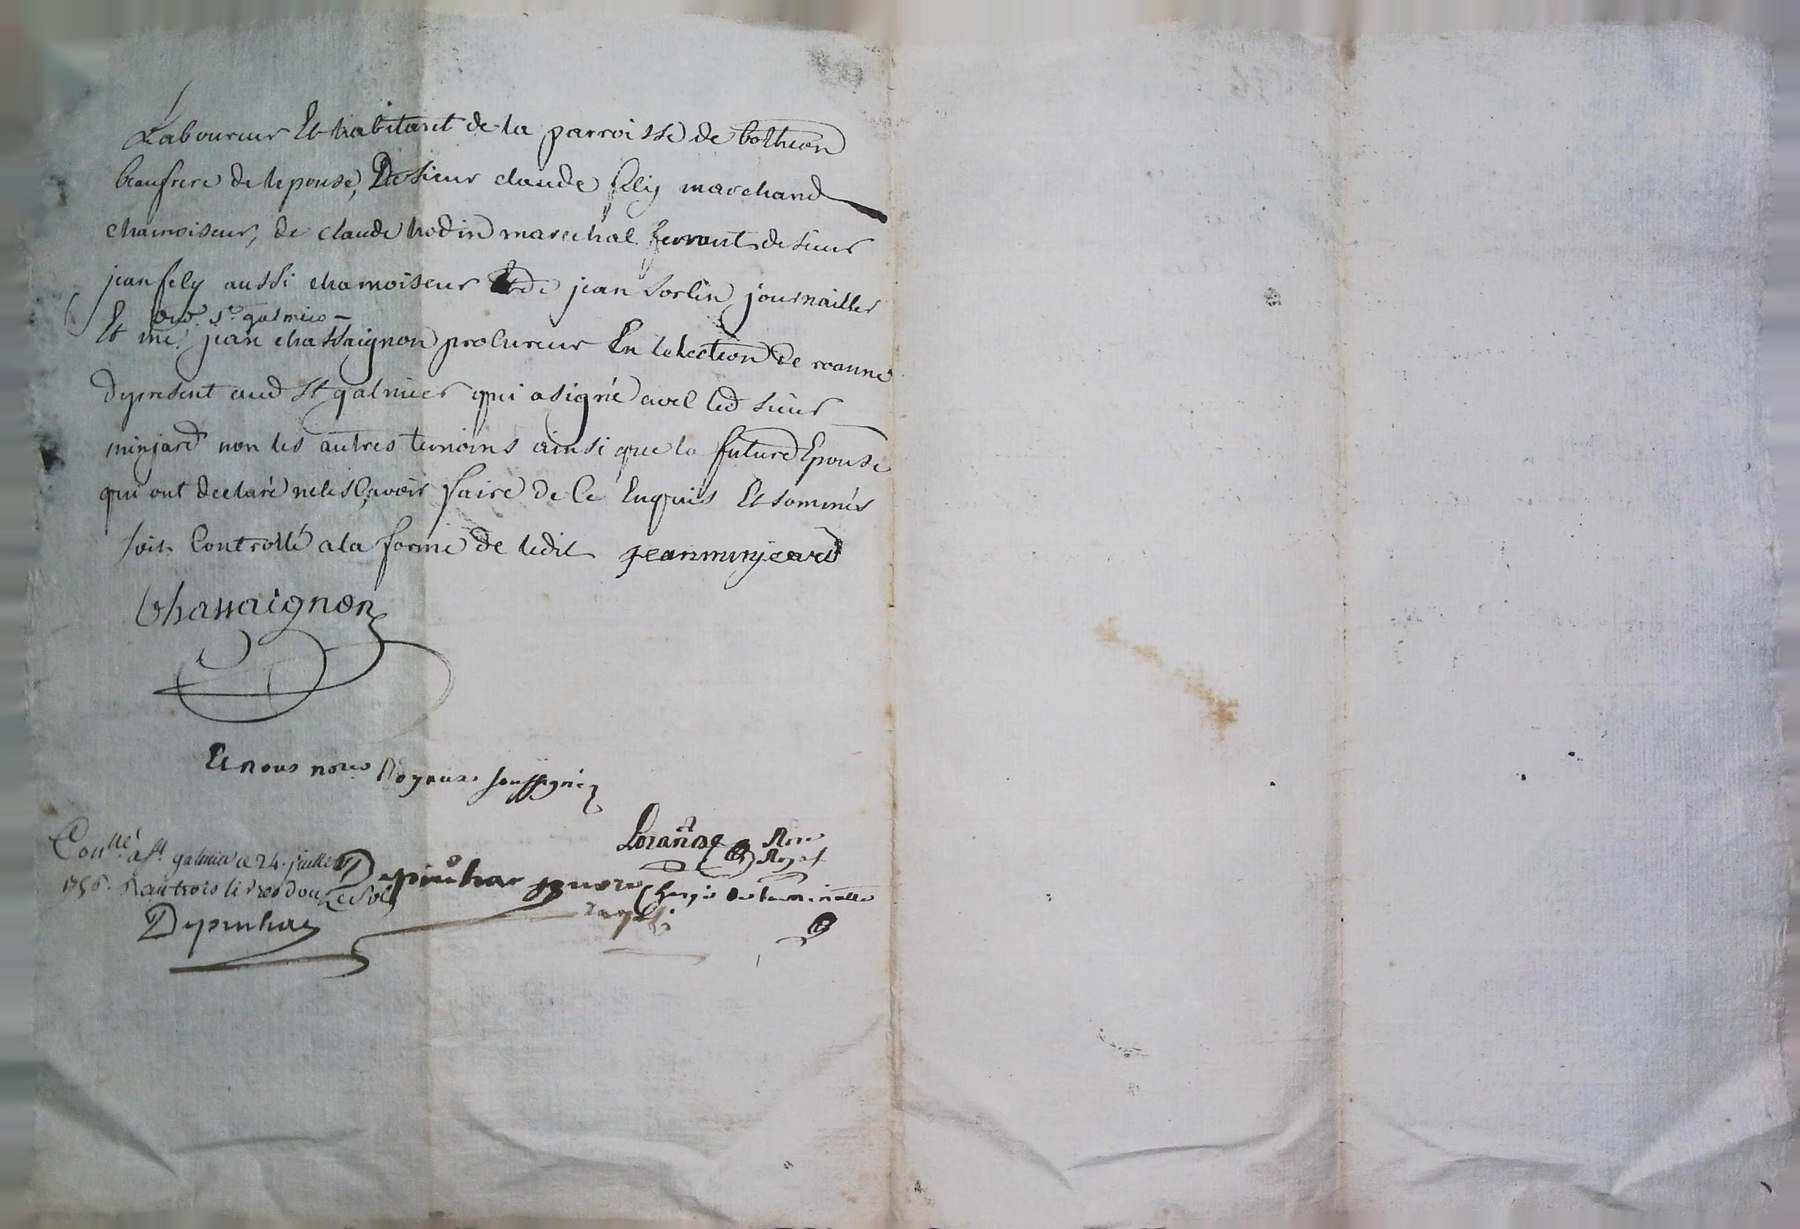 Laboureur Et habitant de la parroisse de botheon
beaufrere de lepouse, De sieur claude fely marchand
chamoiseur, de claude hodin marechal ferrant de sieur
jean fely aussi chamoiseur Et de jean sorlin journaillier
dud. st galmier
Et me jean chassaignon procureur En lelection de roanne
depresent aud st galmier qui a signé avec led sieur
minjard non les autres temoins ainsi que la future Epouse
qui ont declaré ne le sçavoir faire de ce Enquis Et sommés
soit Controllé a la forme de ledit jeanminjeard
Chassaignon
Et nous nores Royaux soussignéz
Conllé a st galmier le 24 juillet
1756. R trois livres douze sols
Depinhac
Depinhac nore
Royal
Nore
Royal